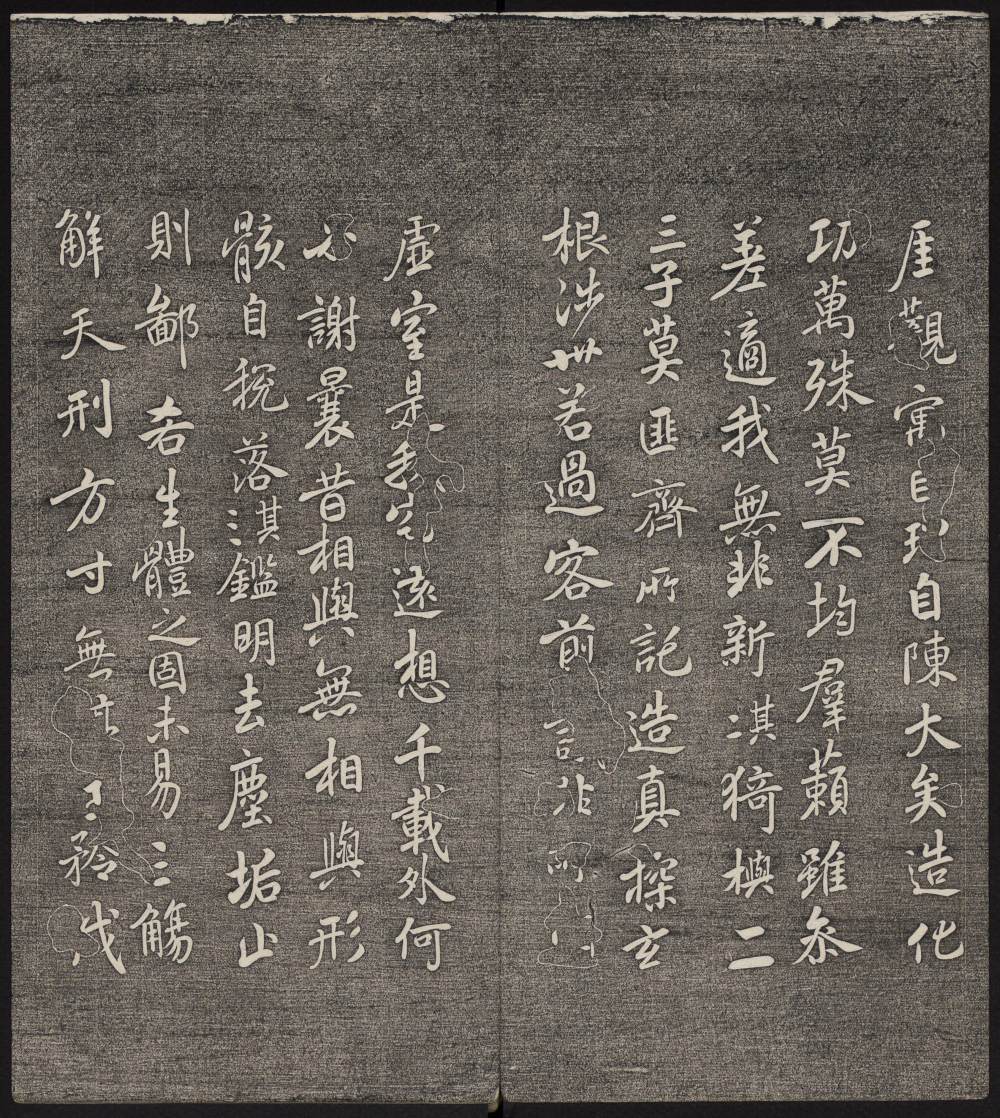 厓觀寓目理自陳大矣造化
功萬殊莫不均羣籟雖叅
差適我無非新其二猗與二
三子莫匪齊所託造真探玄
根涉世若過客前非
虛室是我宅遠想千載外何
必謝曩昔相與無相與形
骸自稅落其三鑑明去塵垢止
則鄙吝生體之固未易三觴
解天刑方寸無矜伐